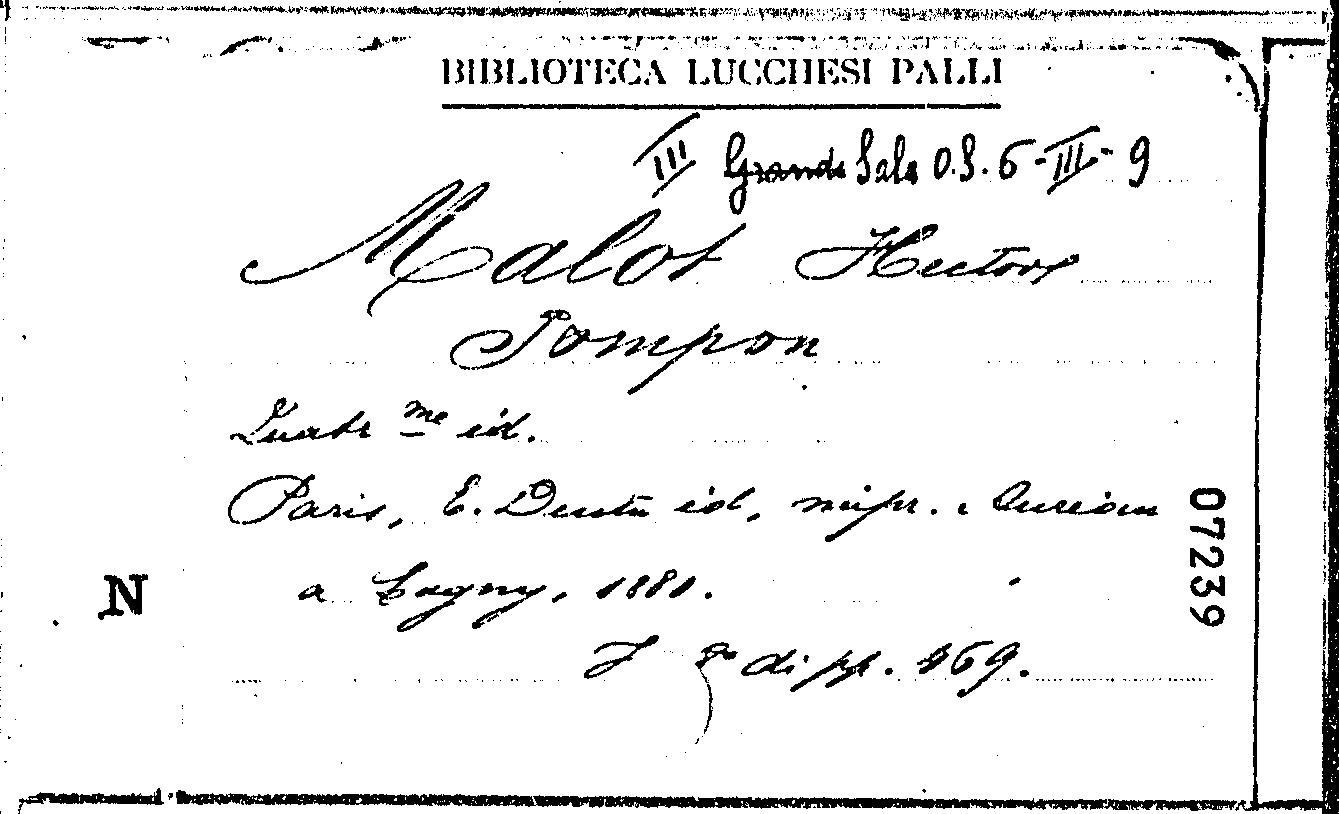 BIBLIOTECA LUCCHESI PALLI
III Grande Sala O.S. 6-III-9
Malot Hector
Pompon
Quatr me éd.
Paris, E. Dentu éd, impr.
a Lagny, 1881.
07239
N
8º di pp. 469.